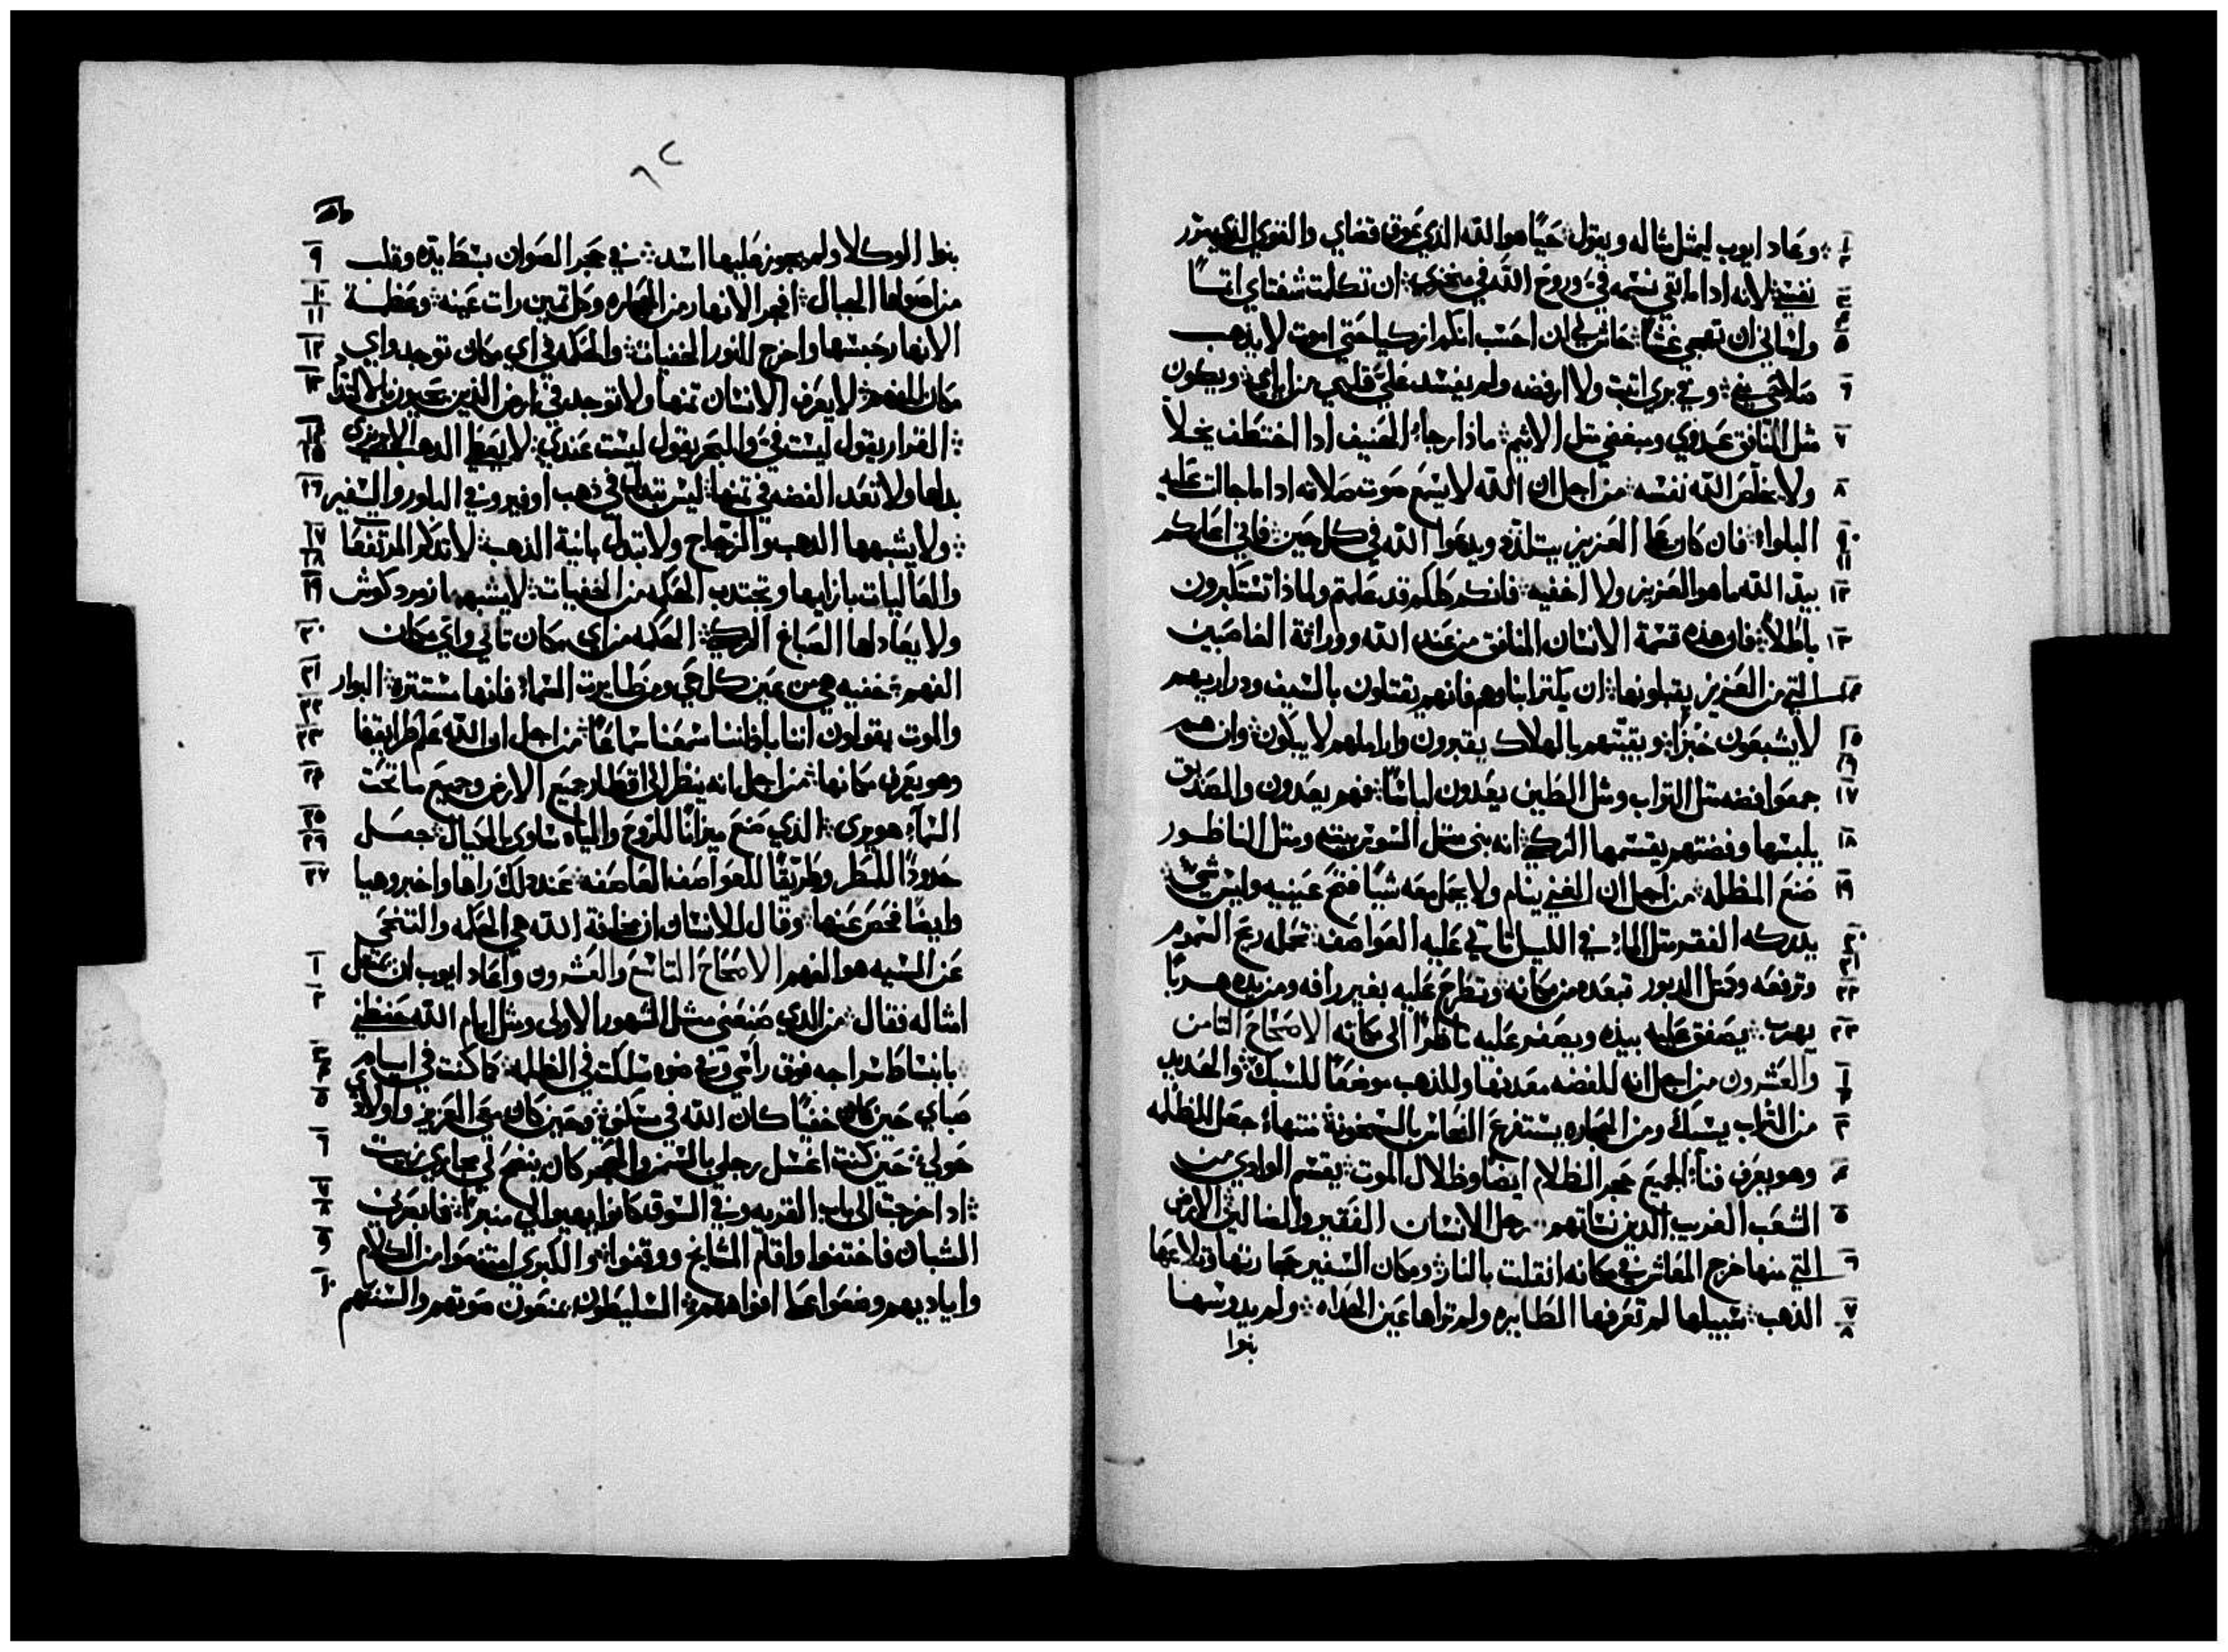 وعاد ايوب ليمثل مثاله ويقول حيًا هو الله الذي عوق قضاي والقوي الذي مرر
نفسي لانه اداما بقي نسمه فيَّ وروح الله في منخري ان تكلمت شفتاي اتمًا
ولساني ان تهجي غشًا حاش لي ان احسب انكم ازكيا حتى اموت لا يذهب
صلاحي مني وفي بري اتبت ولا ارفضه ولم يفسد عليَّ قلبي من ايامي ويكون
مثل المنافق عدوي ومبغضي متل الاتيم ماذا رجاء الحنيف ادا اختطف بخلاً
ولا يخلص الله نفسه من اجل ان الله لا يسمع صوت صلاته اداما جالت عليه
البلوا فان كان علي العزيز يتلذذ ويدعوا الله في كل حين فاني اعلمكم
بيد الله ما هو العزيز ولا اخفيه فانكم كلكم قد علمتم ولماذا تستكبرون
باطلاً فان هذه قسمة الانسان المنافق من عند الله ووراثة الغاصبين
التي من العزيز يقبلونها ان يكثر ابناوهم فانهم يقتلون بالسيف ودراريهم
لا يشبعون خبزًا وبقيتهم بالهلاك يقبرون واراملهم لا يبكون وان هم
جمعوا فضه متل التراب ومثل الطين يعدون لباسًا فهم يعدون والصديق
يلبسها وفضتهم يقسمها الزكي انه بنى متل السوس بيته ومتل الناظور
صنع المظله من اجل ان الغني ينام ولا يحمل معه شيًا فتح عينيه وليس شي
يدركه الفقر متل الماء في الليل تاتي عليه العواصف تحمله ريح السموم
وترفعه وكتل الدبور تبعده من مكانه وتطرح عليه بغير رافه ومن يده هربًا
يهرب يصفق عليه بيده ويصفر عليه ناظرًا الى مكانه الاصحاح التامن
والعشرون من اجل انه للفضه معدنها وللذهب موضعًا للسبك والحديد
من التراب يسبك ومن الحجاره يستفرغ النحاس بالسخونة منتهاء جعل للظله
وهو يعرف فناء الجميع حجر الظلام ايضًا وظلال الموت يقسم الوادي من
الشعب الغريب الدين نساتهم رجل الانسان الفقير والضالين الارض
التي منها خرج المعاش في مكانه انقلبت بالنار ومكان السفير حجارتها وتلاعها
الذهب سبيلها لم تعرفها الطايره ولم تراها عين الحداه ولم يدوسها
بنوا
بنوا الوكلا ولم يجوز عليها اسد في حجر الصوان بسط يده وقلب
من اصولها الجبال افجر الانهار من الحجاره وكل تمين رات عينه وعظمة
الانهار حبسها واخرج للنور الخفيات والحكمه في اي مكان توجد واي
مكان الفهم لا يعرف الانسان تمنها ولا توجد في ارض الذين يحيون بالالتذاذ
القرار يقول ليست فيَّ والبحر يقول ليست عندي لا يعطي الدهب الابريزي
بدلها ولا تعد الفضه في تمنها ليس تبدل في ذهب اوفير وفي البلور والسفير
ولا يشبهها الدهب والزجاج ولا تبدل بانية الذهب لا تذكر المرتفعا
والعاليات بازايها وتجتدب الحكمه من الخفيات لا يشبهها زمرد كوش
ولا يعادلها الصباغ الزكي الحكمه من اي مكان تاتي واي مكان
الفهم خفيه هي من عين كل حي ومن طايرت السماء فانها مستتره البوار
والموت يقولون اننا باذاننا سمعنا سماعًا من اجل ان الله علم طرايقها
وهو يعرف مكانها من اجل انه ينظر الى اقطار جميع الارض وجميع ما تحت
السماء هو يرى الذي صنع ميزانًا للروح والمياه ساوى بالكيال جعل
حدودًا للمطر وطريقًا للعواصف العاصفه عند ذلك راها واخبر وهيا
وايضًا فحص عنها وقال للانسان ان مخافة الله هي الحكمه والتنحي
عن السيه هو الفهم الاصحاح التاسع والعشرون واعاد ايوب ان يتمثل
امثاله فقال من الذي صنعني مثل الشهور الاولى ومثل ايام الله حفظني
بانبساط سراجه فوق راسي وفي ضوه سلكت في الظلمه كما كنت في ايام
صباي حين كان خفيًا كان الله في مسكني وحين كان معي العزيز واولادي
حولي حين كنت اغسل رجلي بالسمن والحجر كان ينفتح لي مجاري زيت
اذا خرجت الى باب القريه وفي السوق كانوا يهيوا لي منبرًا فاذ يعرفني
الشبان فاختفوا واقام المشايخ ووقفوا والكبري امتنعوا من الكلام
واياديهم وضعوا علي افواههم السليطون يمنعون صوتهم والسنتهم